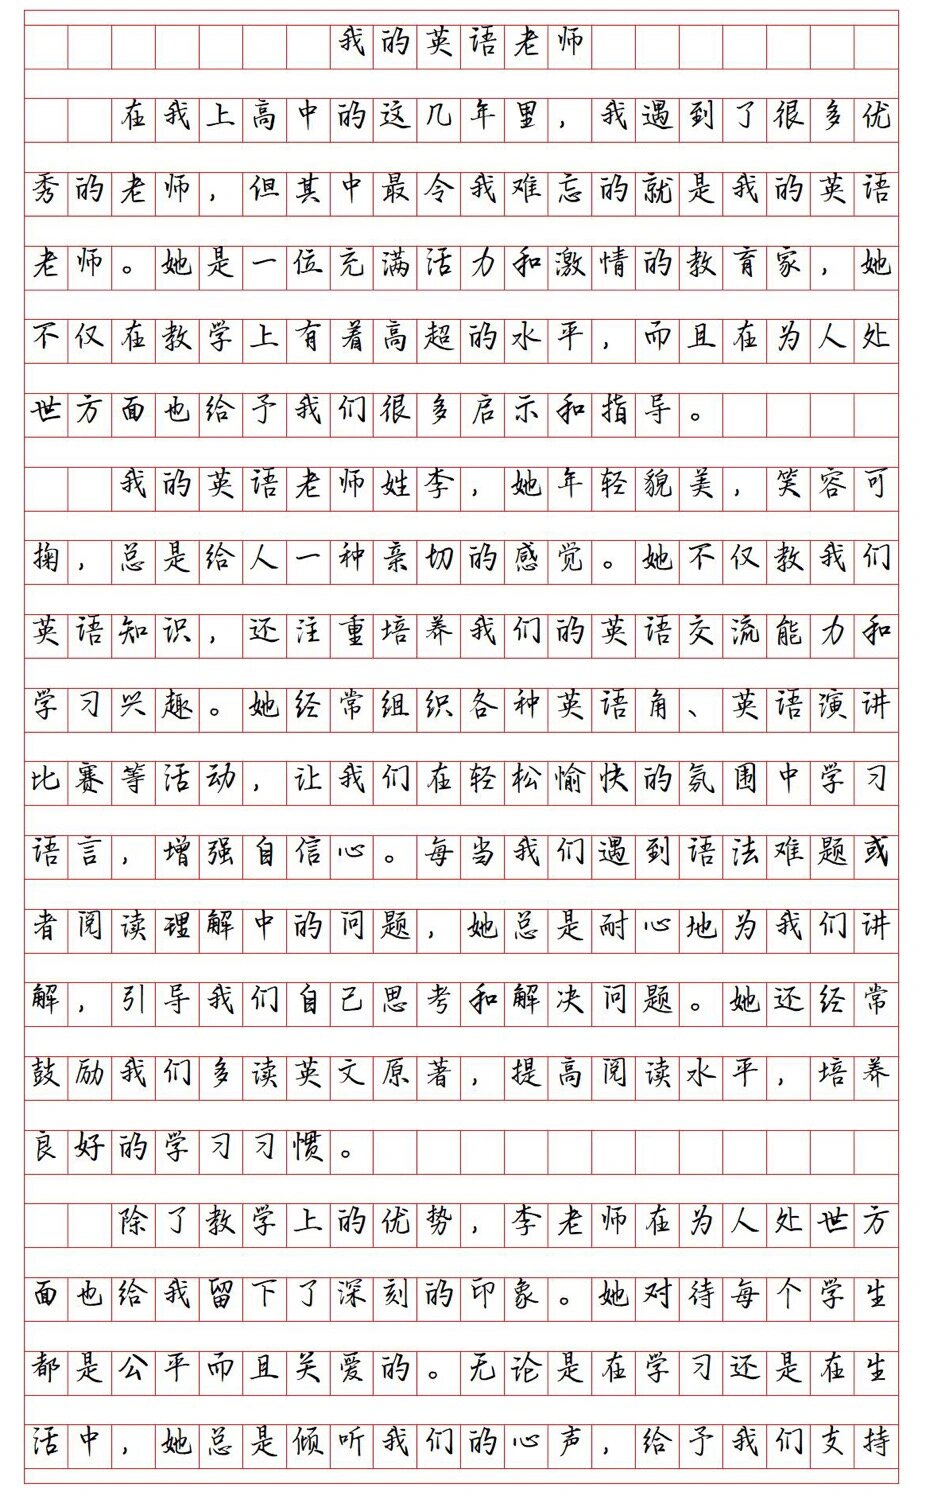 我的英语老师
在我上高中的这几年里，我遇到了很多优
秀的老师，但其中最令我难忘的就是我的英语
老师。她是一位充满活力和激情的教育家，她
不仅在教学上有着高超的水平，而且在为人处
世方面也给予我们很多启示和指导。
我的英语老师姓李，她年轻貌美，笑容可
掬，总是给人一种亲切的感觉。她不仅教我们
英语知识，还注重培养我们的英语交流能力和
学习兴趣。她经常组织各种英语角、英语演讲
比赛等活动，让我们在轻松愉快的氛围中学习
语言，增强自信心。每当我们遇到语法难题或
者阅读理解中的问题，她总是耐心地为我们讲
解，引导我们自己思考和解决问题。她还经常
鼓励我们多读英文原著，提高阅读水平，培养
良好的学习习惯。
除了教学上的优势，李老师在为人处世方
面也给我留下了深刻的印象。她对待每个学生
都是公平而且关爱的。无论是在学习还是在生
活中，她总是倾听我们的心声，给予我们支持